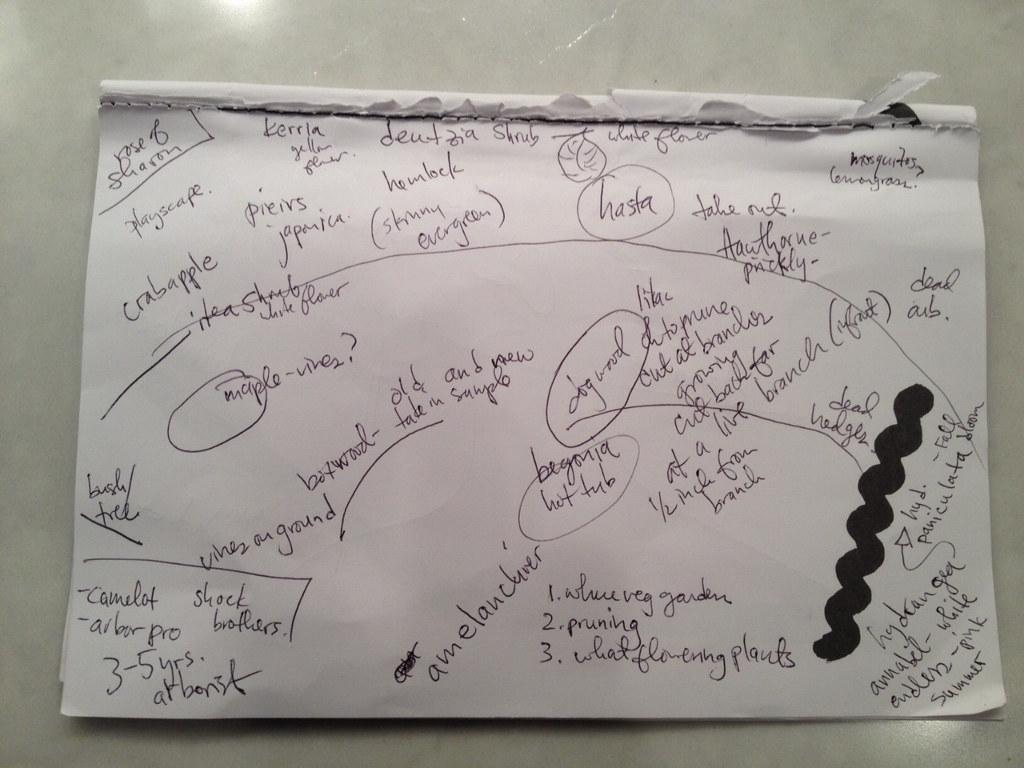 rose of
sharon
kerria
yellow
flower.
deutzia shrub - white flower
mosquitos,
lemongrass.
playscape.
pieirs
japonica.
hemlock
(skinny
evergreen)
hasta
take out.
Hawthorne-
prickly-
crabapple
itea shrub
white flower
dead
arb.
maple-vines?
old and new
boxwood- take in sample
dogwood
lilac
cut at branches
growing
cut back far
at a live branch (if not)
1/2 inch from
branch
dead
hedges
begonia
hot tub
bush/
tree
vines on ground
hyd. - Fall
paniculata bloom
-camelot shock
-arbor pro brothers.
3-5 yrs.
arborist
amelanchier
1. where veg garden
2. pruning
3. what flowering plants
hydrangea
annabel- white
endless - pink
summer